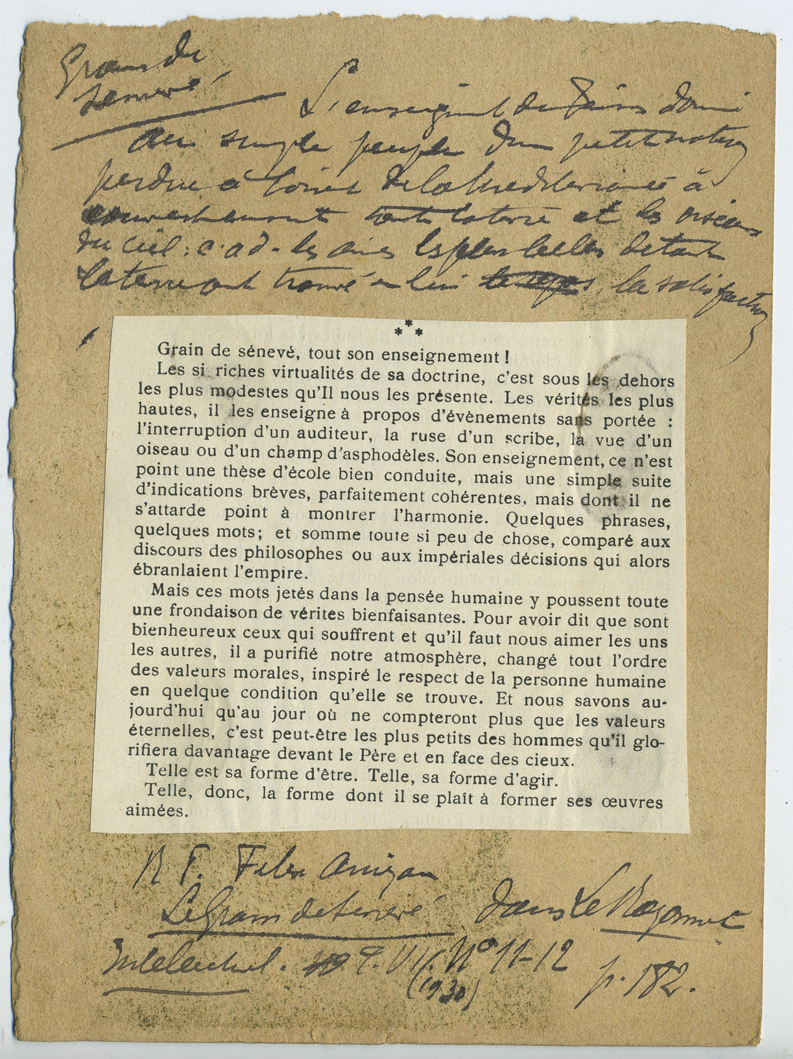 Grain de
sénevé
L'enseignt de Jésus donné
au simple peuple d'un petit
perdue à de la Méditerranée à
la terre et les oiseaux
du ciel : c. à d. les âmes les plus belles de toute
la terre ont trouvé en lui la satisfaction
* * *
Grain de sénevé, tout son enseignement !
Les si riches virtualités de sa doctrine, c'est sous les dehors
les plus modestes qu'Il nous les présente. Les vérités les plus
hautes, il les enseigne à propos d'évènements sans portée :
l'interruption d'un auditeur, la ruse d'un scribe, la vue d'un
oiseau ou d'un champ d'asphodèles. Son enseignement, ce n'est
point une thèse d'école bien conduite, mais une simple suite
d'indications brèves, parfaitement cohérentes, mais dont il ne
s'attarde point à montrer l'harmonie. Quelques phrases,
quelques mots; et somme toute si peu de chose, comparé aux
discours des philosophes ou aux impériales décisions qui alors
ébranlaient l'empire.
Mais ces mots jetés dans la pensée humaine y poussent toute
une frondaison de vérités bienfaisantes. Pour avoir dit que sont
bienheureux ceux qui souffrent et qu'il faut nous aimer les uns
les autres, il a purifié notre atmosphère, changé tout l'ordre
des valeurs morales, inspiré le respect de la personne humaine
en quelque condition qu'elle se trouve. Et nous savons au-
jourd'hui qu'au jour où ne compteront plus que les valeurs
éternelles, c'est peut-être les plus petits des hommes qu'il glo-
rifiera davantage devant le Père et en face des cieux.
Telle est sa forme d'être. Telle, sa forme d'agir.
Telle, donc, la forme dont il se plaît à former ses œuvres
aimées.
R P.
Le Grain de Sénevé dans Le Rayonnet
Intellectuel. T. VI N° 11-12
(1930) p. 182.